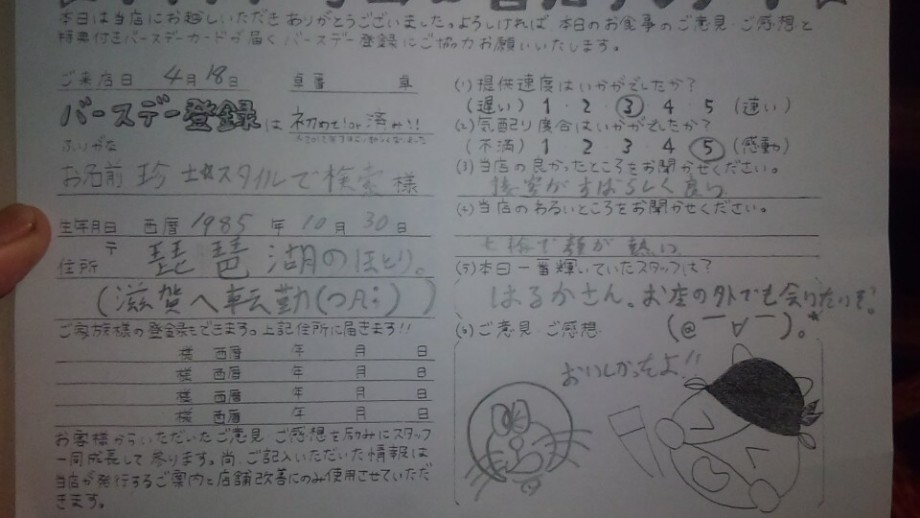 本日は当店にお越しいただきありがとうございました。よろしければ、本日のお食事のご意見・ご感想と
特典付きバースデーカードが届くバースデー登録にご協力お願いいたします。
ご来店日 4月18日 卓番 卓
バースデー登録は 初めて!or済み!!
ふりがな
お名前 珍 スタイルで検索 様
生年月日 西暦 1985 年 10 月 30 日
〒
住所 琵琶湖のほとり。
(滋賀へ転勤(つД;))
ご家族様の登録もできます。上記住所に届きます!!
様 西暦 年 月 日
様 西暦 年 月 日
様 西暦 年 月 日
様 西暦 年 月 日
お客様からいただいたご意見・ご感想を励みにスタッフ
一同成長して参ります。尚、ご記入いただいた情報は
当店が発行するご案内と店舗改善にのみ使用させていただ
きます。
(1)提供速度はいかがでしたか?
(遅い) 1・2・3・4・5 (速い)
(2)気配り度合はいかがでしたか?
(不満) 1・2・3・4・5 (感動)
(3)当店の良かったところをお聞かせください。
接客がすばらしく良い
(4)当店のわるいところをお聞かせください。
で顔が熱い
(5)本日一番輝いていたスタッフは?
はるかさん。お店の外でも会いたいぞ。
(@￣∀￣)。*
(6)ご意見・ご感想
おいしかったよ!!